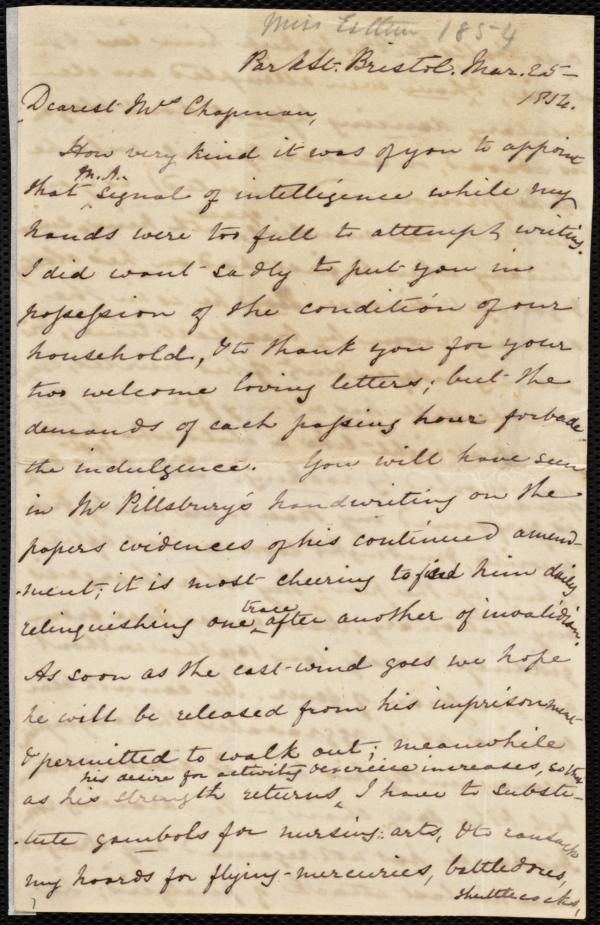 Miss Estlin 1854
Park St. Bristol. Mar. 25
1854.
Dearest Mrs Chapman,
How very kind it was of you to appoint
M. A.
that signal of intelligence while my
hands were too full to attempt writing.
I did want sadly to put you in
possession of the condition of our
household, & to thank you for your
two welcome loving letters; but the
demands of each passing hour forbade
the indulgence. You will have seen
in Mr Pillsbury's handwriting on the
papers evidences of his continued amend-
-ment; it is most cheering to find him daily
trace
relinquishing one after another of invalidism.
As soon as the east-wind goes we hope
he will be released from his imprisonment
& permitted to walk out; meanwhile
his desire for activity & exercise increases, so that
as his strength returns, I have to substi-
-tute gambols for nursing-arts, & to ransack
my hoards for flying-mercuries, battledores,
shuttlecocks,